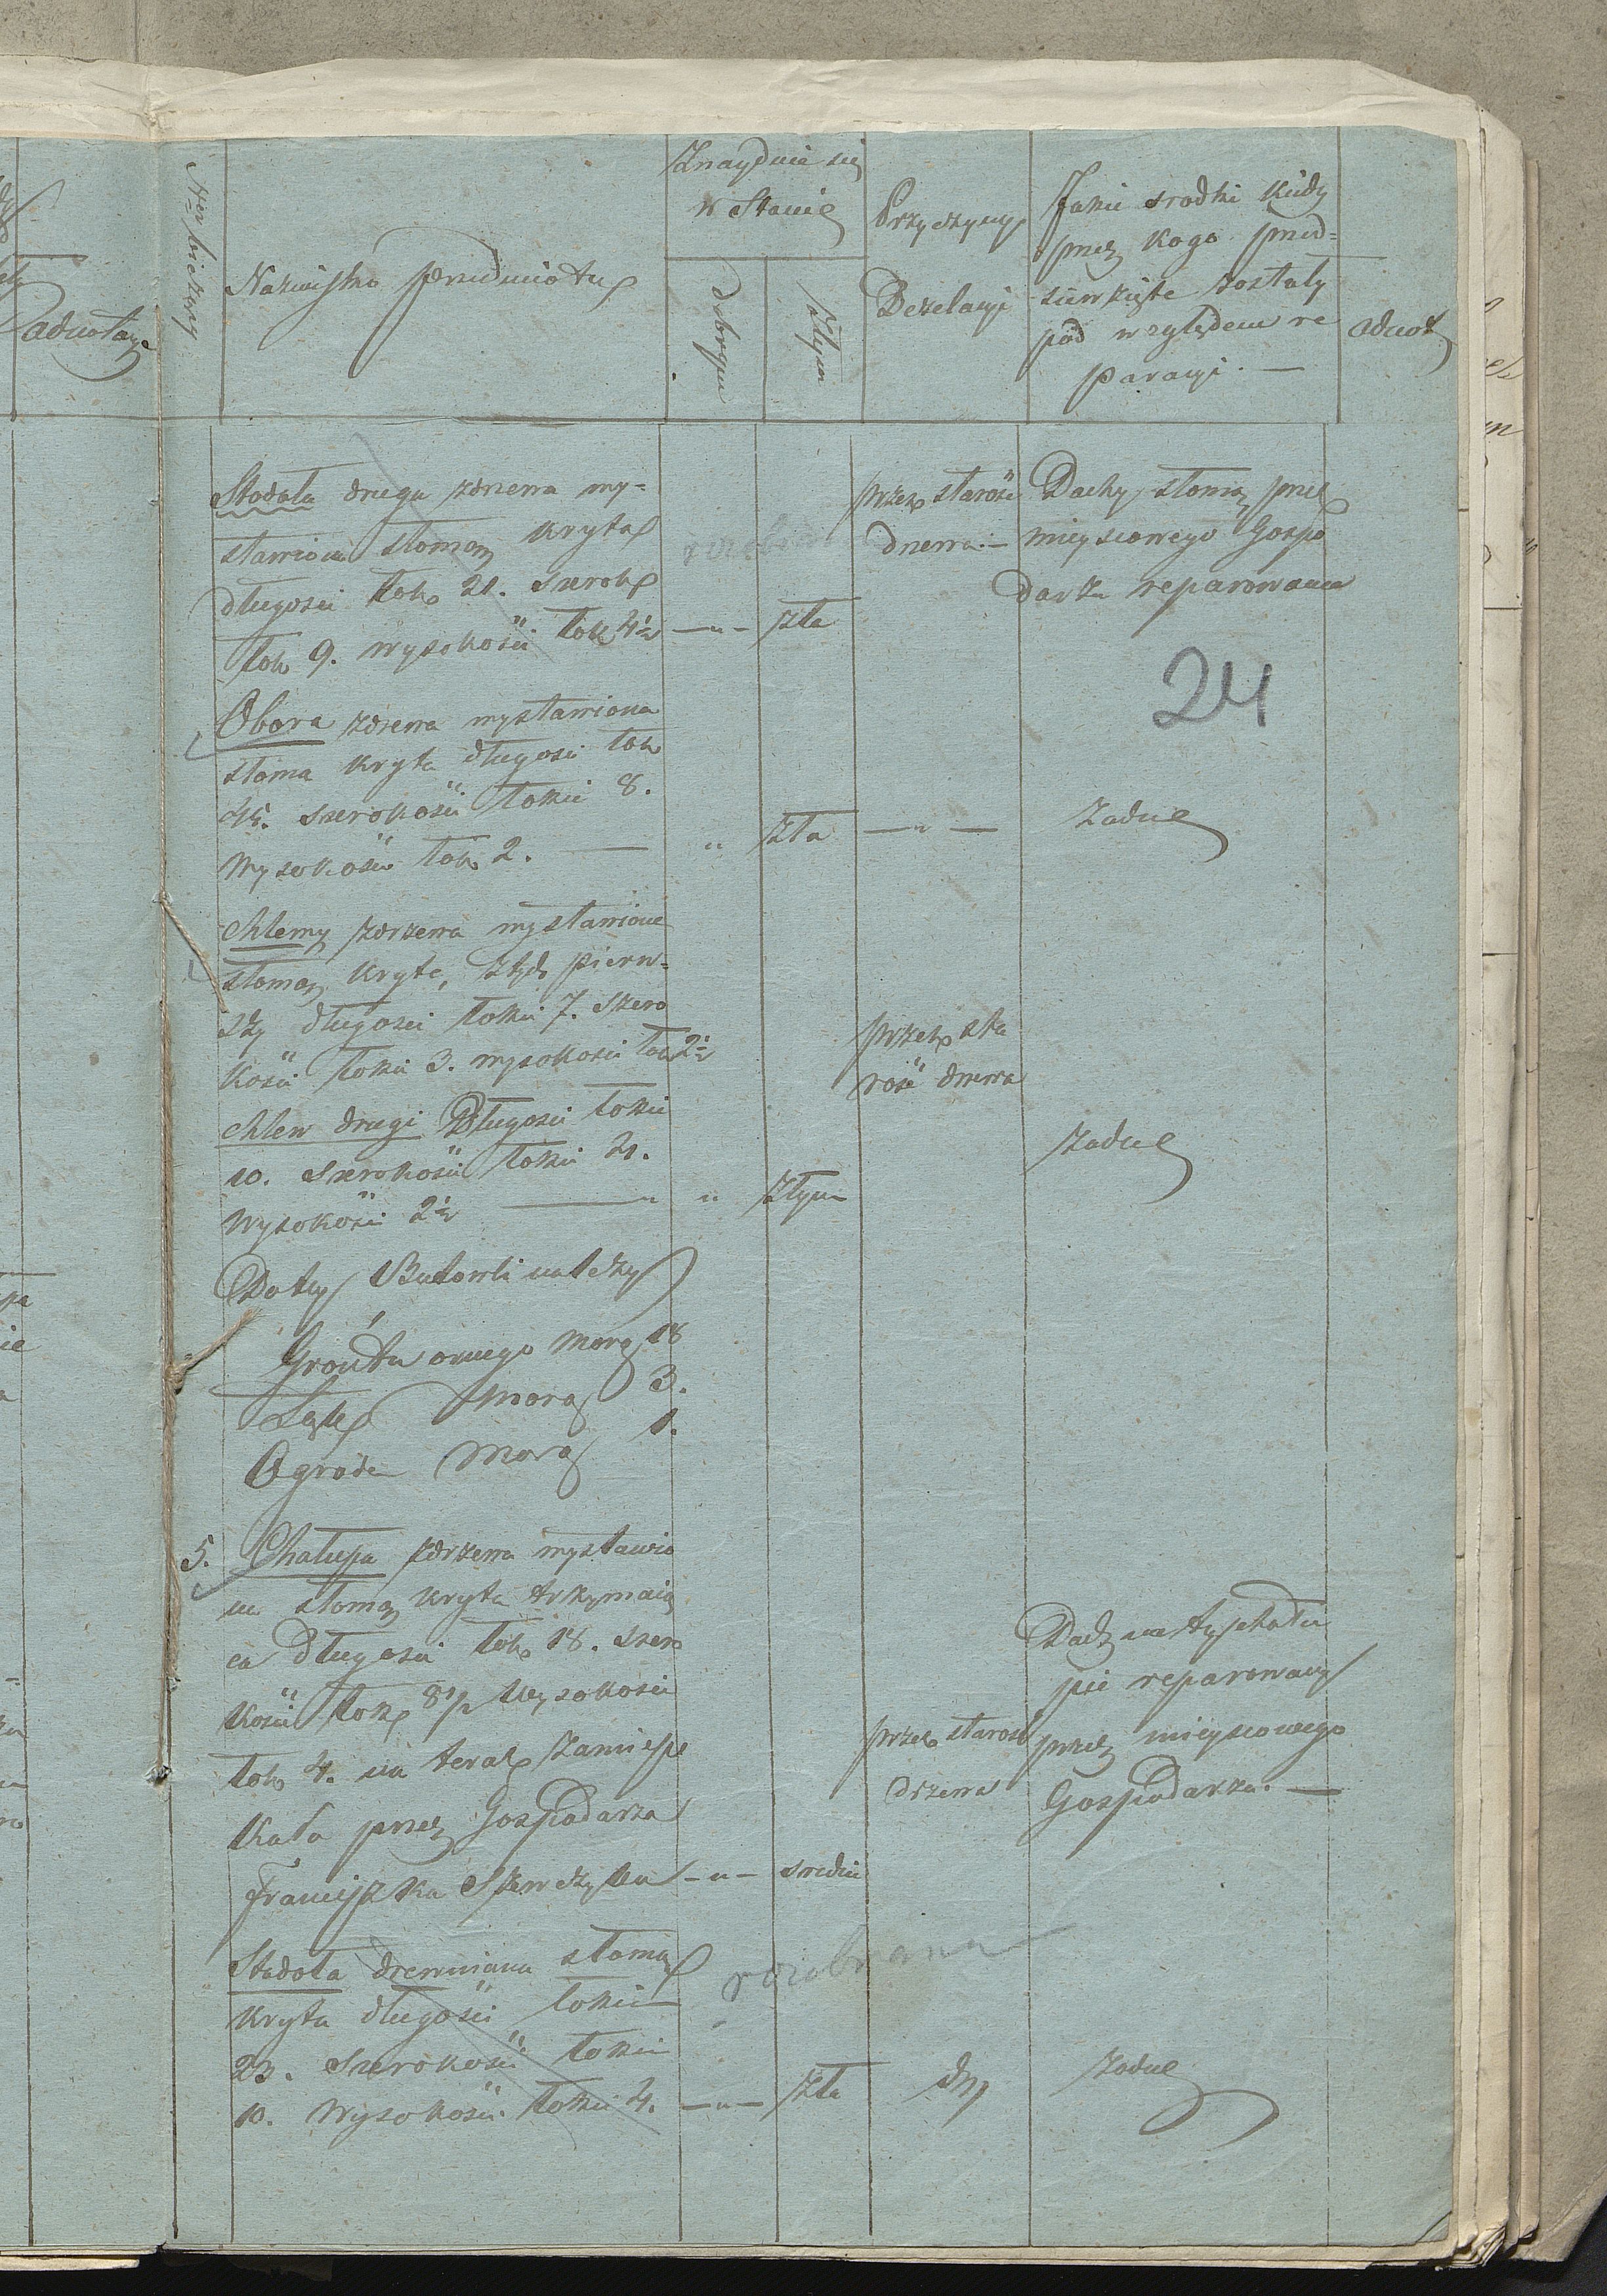 adnotacye
Ner bieżący
Nazwisko przedmiotu
Znayduie się
w Stanie
dobrym
złym
Przyczyny
Dezelacyi
Jakie srodki kiedy
przez kogo przed=
siewzięte zostały
pod względem re
paracyi. —
adnot
Stodoła druga zdrzewa wy=
stawiona słomą kryta
długosci łok 21. szerok
łok 9. wysokości łok 4½ —„— zła
przez starość
drzewa.—
Dachy słomą przez
mieyscowego Gospo
darza reparowane
24
Obora zdrzewa wystawiona
słoma kryta długosci łok
45. szerokości łokci 8.
Wysokości łok 2. — „ zła —„— żadne
Chlewy zdrzewa wystawione
słomą kryte, z tych pierw=
szy długosci łokci 7. szero
kości łokci 3. wysokosci łok 2½
przez sta
rość drzewa
Chlew drugi Długosci łokci
10. szerokości łokci 4.
Wysokości 2½ — „ „ złym
żadne
Do tey Budowli należy
Grontu ornego morg 18
Łąk morg 3.
Ogrodu Morg 1.
5. Chałupa zdrzewa wystawio
na słomą kryta trzymaią
ca Długosci łok 18. szero
kości łok 8½ Wysokosci
łok 4. na teraz zamiesz
kała przez Gospodarza
Franciszka Szewczyka —„— sredni
przez starość
drzewa
Dach na tey chału
pie reparowany
przez mieyscowego
Gospodarza. —
Stodoła drewniana słomą
kryta długości łokci
23. Szerokości łokci
10. Wysokości łokci 4. —„— zła
rozebrana
żadne